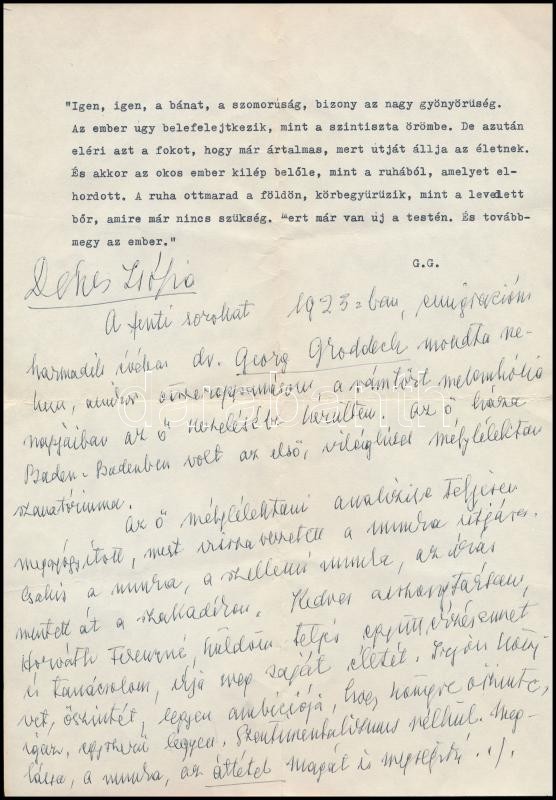 "Igen, igen, a bánat, a szomoruság, bizony az nagy gyönyörüség.
Az ember ugy belefelejtkezik, mint a szintiszta örömbe. De azután
eléri azt a fokot, hogy már ártalmas, mert utját állja az életnek.
És akkor az okos ember kilép belőle, mint a ruhából, amelyet el-
hordott. A ruha ottmarad a földön, körbegyürüzik, mint a levedlett
bőr, amire már nincs szükség. Mert már van uj a testén. És tovább-
megy az ember."
G.G.
Dénes Zsófia
A fenti sorokat 1923-ban, emigrációm
harmadik évében dr. Georg Groddeck mondta ne-
kem, amikor összeroppanásom, a rámtört melankólia
napjaiban az ő kezelésébe kerültem. Az ő háza
Baden-Badenben volt az első, világhírű mélylélektan
szanatóriuma.
Az ő mélylélektani analízise teljesen
meggyógyított, mert visszavezetett a munka útjára.
Csakis a munka, a szellemi munka, az írás
mentett át a szakadékon. Kedves asszonytársam,
Horváth Ferencné, küldöm teljes együttérzésemet
és tanácsolom, írja meg saját életét. Írjon köny-
vet, őszintét, legyen ambíciója, hogy könyve őszinte,
igaz, egyszerű legyen. Szentimentalizmus nélkül. Meg-
lássa, a munka, az áttétel magát is megsegíti ./.